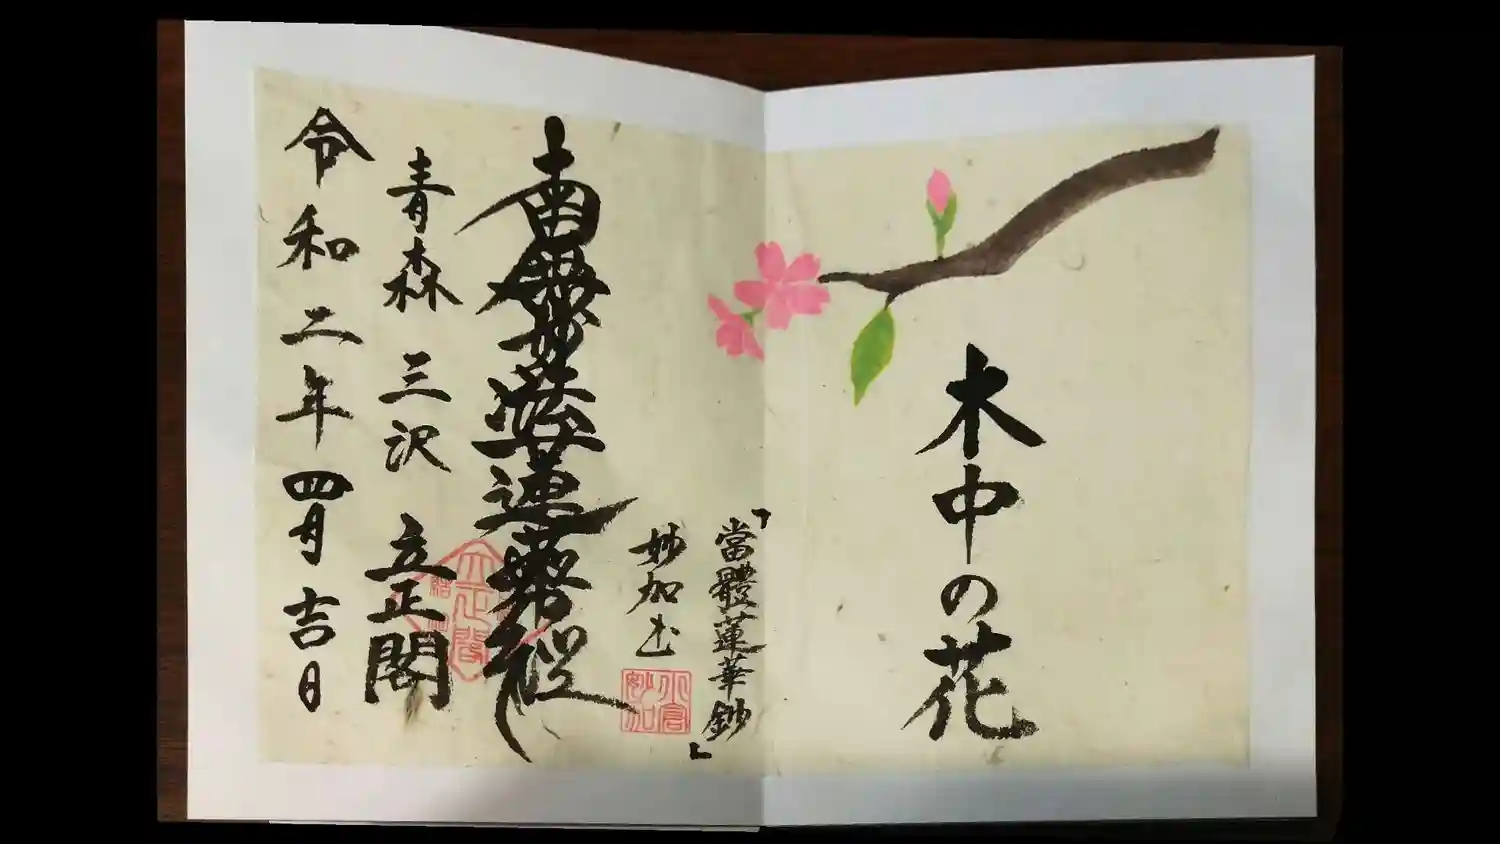 木中の花
「當體蓮華鈔」
妙加書
小倉妙加
南無妙法蓮華経
青森 三沢 立正閣
立正閣
令和二年四月吉日